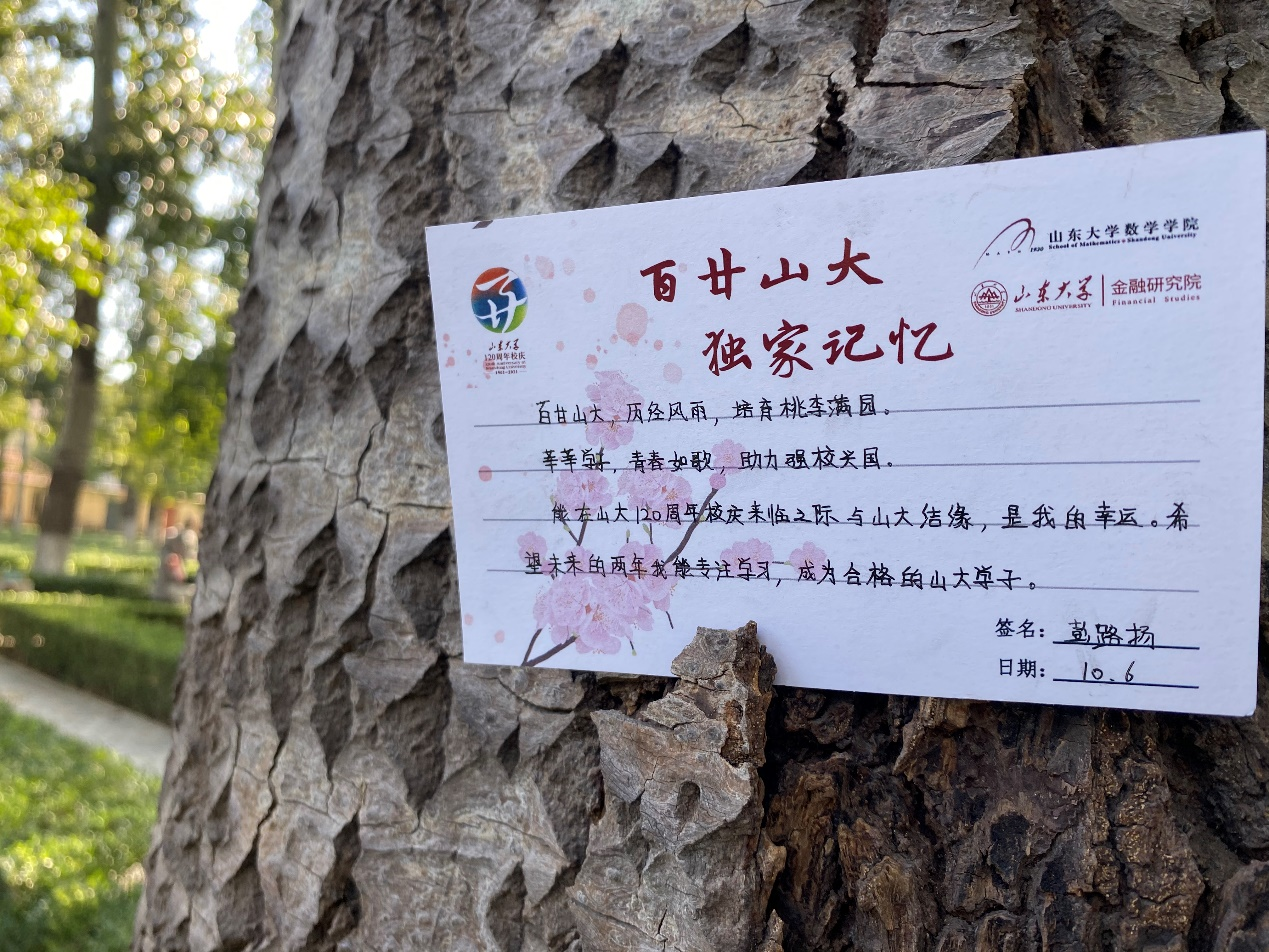 百廿山大
独家记忆
山东大学
120周年校庆
1901-2021
1930
山东大学数学学院
School of Mathematics Shandong University
山东大学
SHANDONG UNIVERSITY
金融研究院
Financial Studies
百廿山大，历经风雨，培育桃李满园。
莘莘学子，青春如歌，助力强校兴国。
能在山大120周年校庆来临之际与山大结缘，是我的幸运。希
望未来的两年我能专注学习，成为合格的山大学子。
签名：彭路扬
日期：10.6